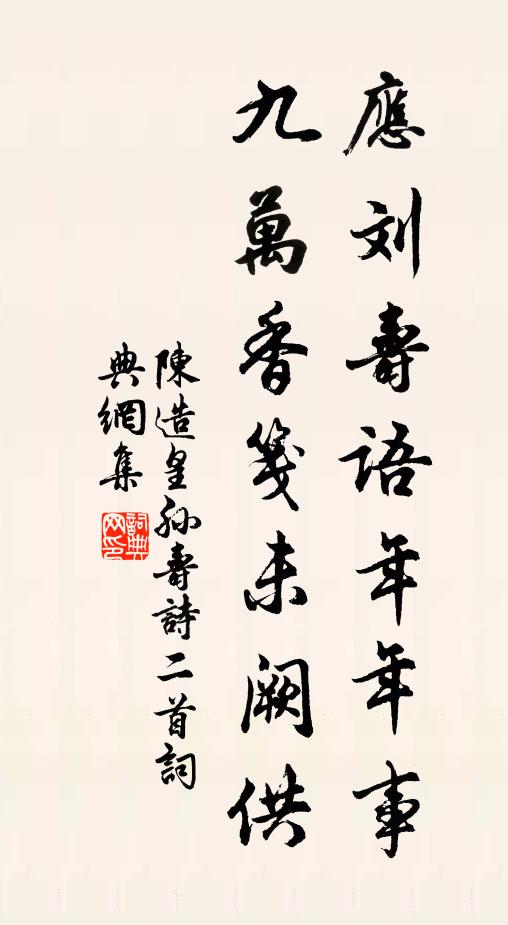 應刘壽語年年事
九萬香箋未阙供
陳造皇孙壽詩二首詞
典網集
詞典網印